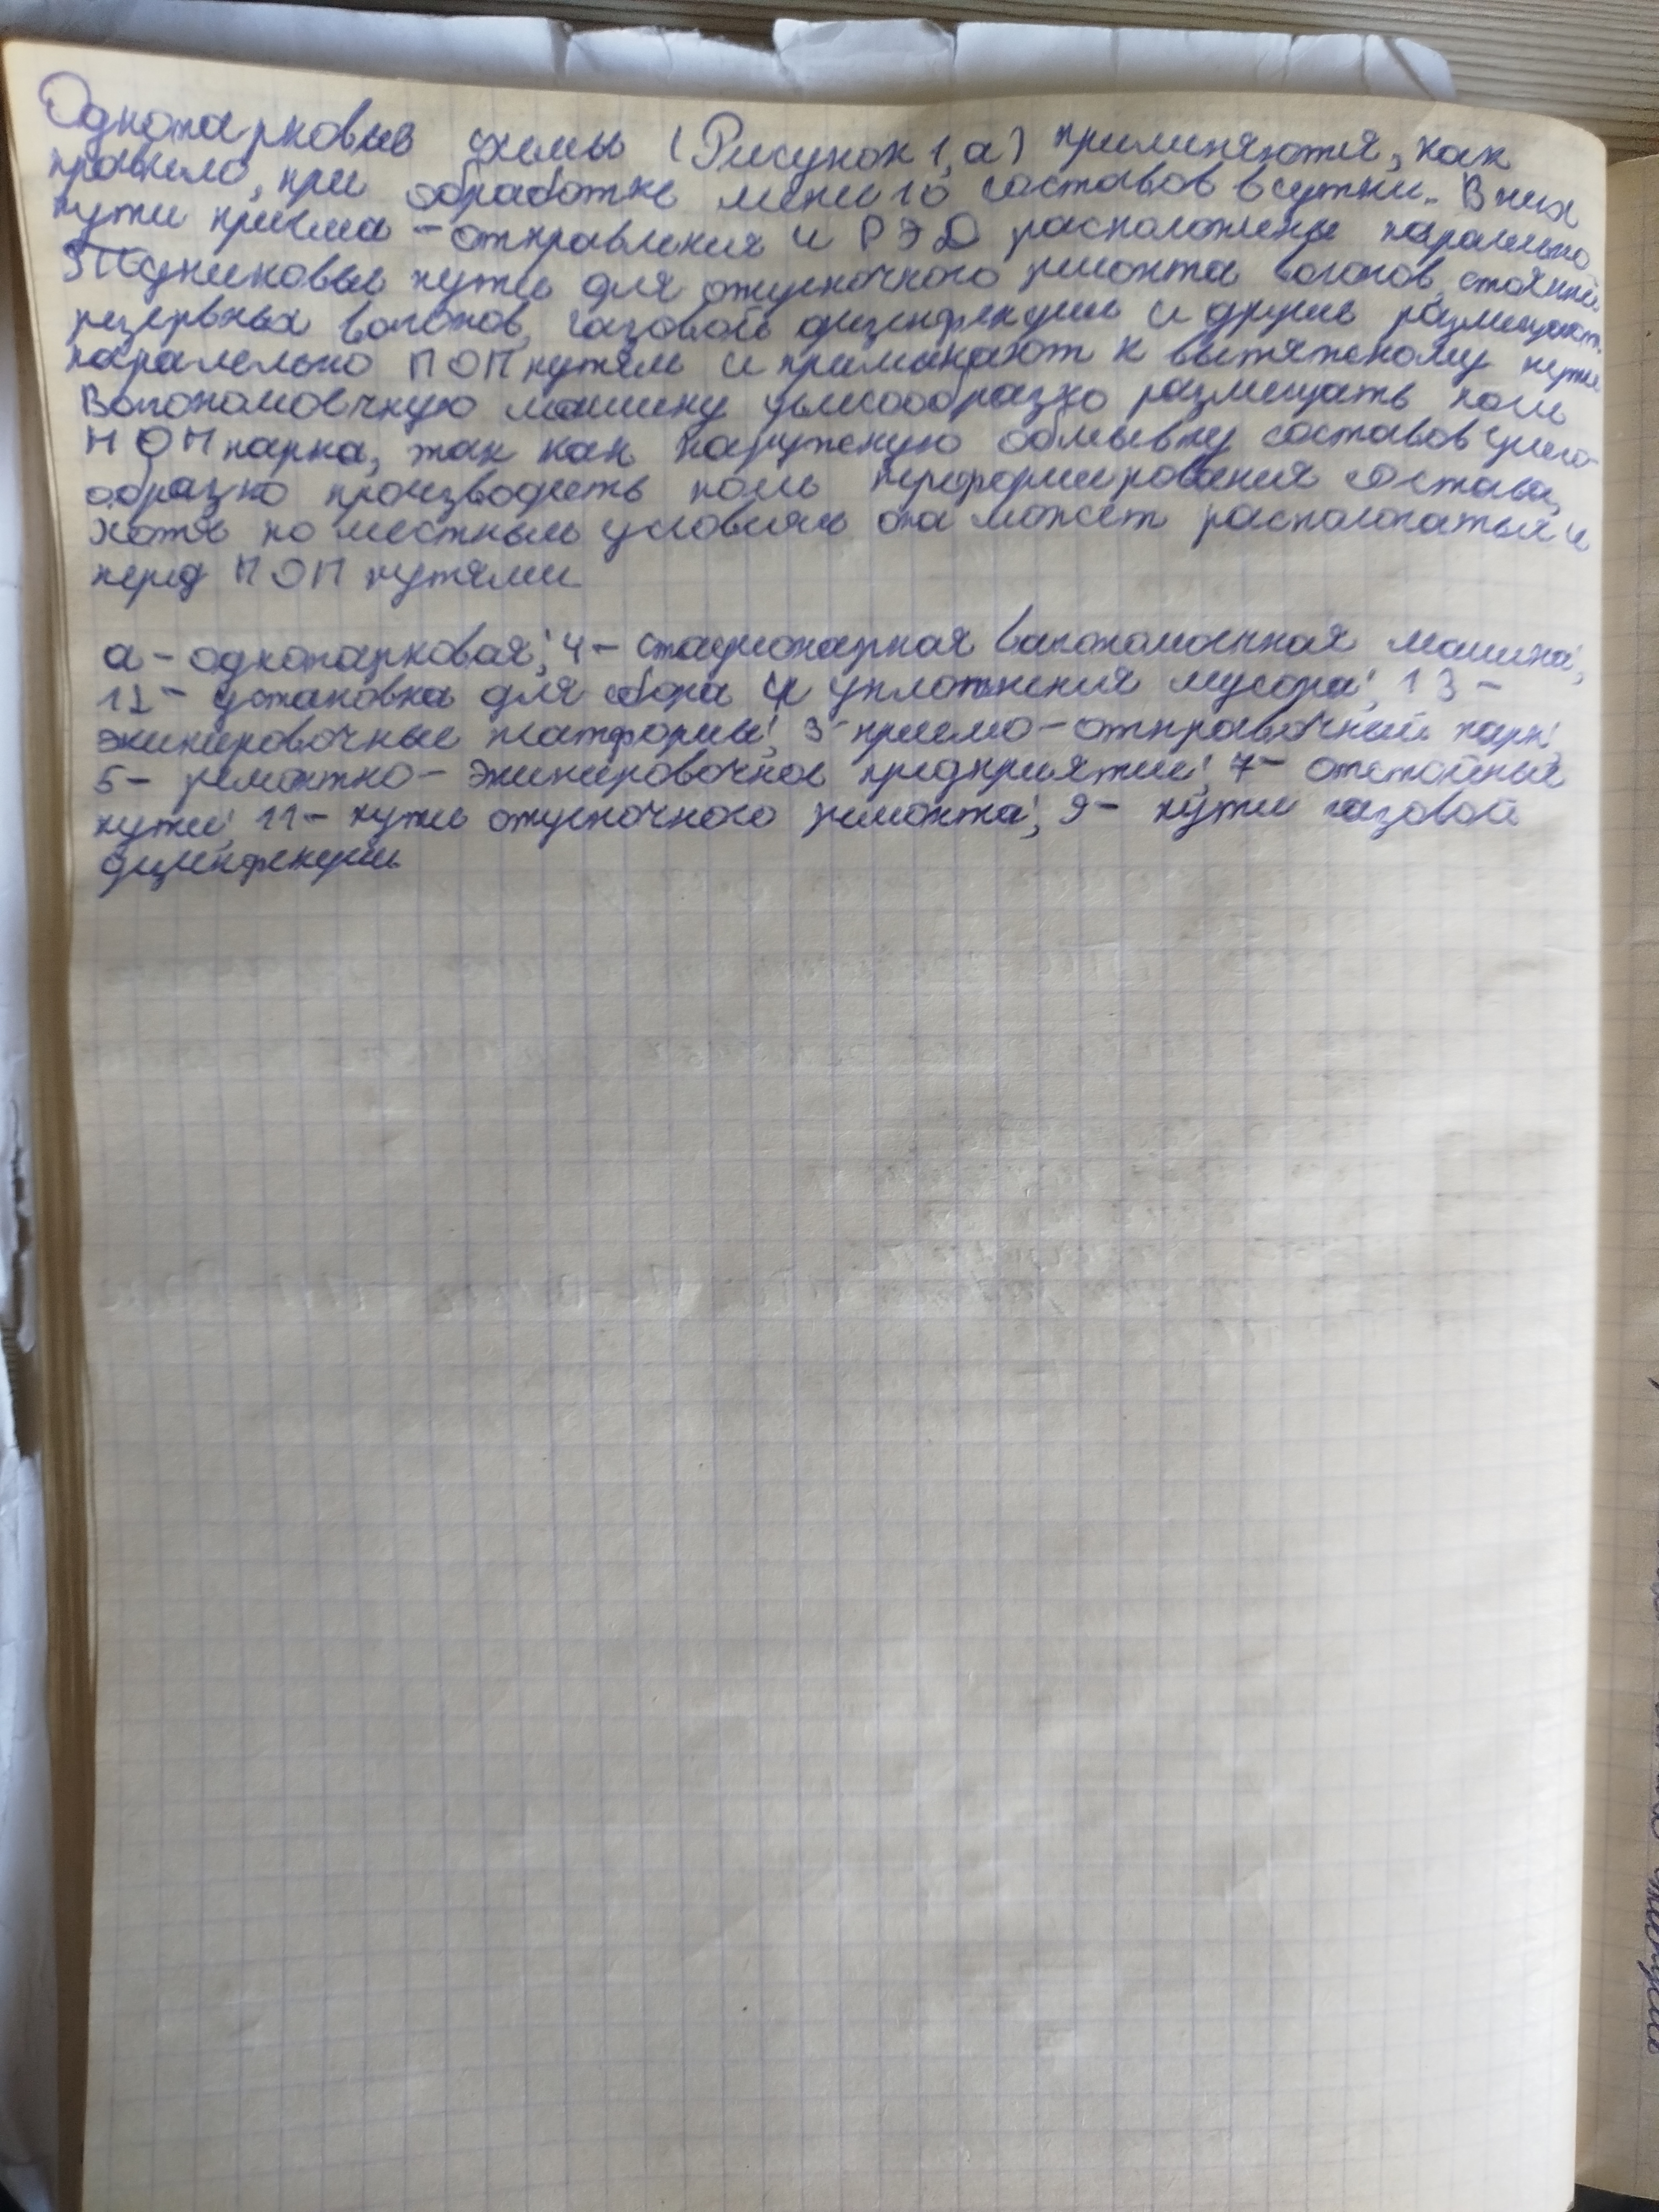 Однопарковые схемы (Рисунок 1, а) применяются, как
правило, при обработке менее 10 составов в сутки. В них
пути приема - отправления и РЭД расположены паралельно
Тупиковые пути для отцепочного ремонта вагонов, стоянки
резервных вагонов, газовой дизенфекции и другие размещают
паралельно ПОП путям и примыкают к вытяжному пути
Вагономоечную машину целесообразно размещать после
ПОП парка, так как наружную обмывку составов целесо-
образно производить после переформирования состава,
хотя по местным условиям она может располагаться и
перед ПОП путями
а - однопарковая; 4 - стационарная вагономоечная машина;
12 - установка для сбора и уплотнения мусора; 13 -
экипировочные платформы; 3 - приемо - отправочный парк;
5 - ремонтно - экипировочное предприятие; 7 - отстойные
пути; 11 - пути отцепочного ремонта; 9 - пути газовой
дизенфекции